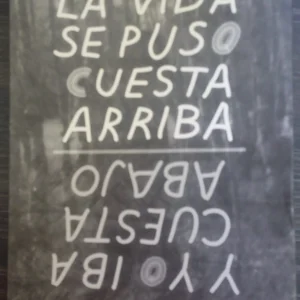 LA VIDA
SE PUSO
CUESTA
ARRIBA
Y YO IBA
CUESTA
ABAJO